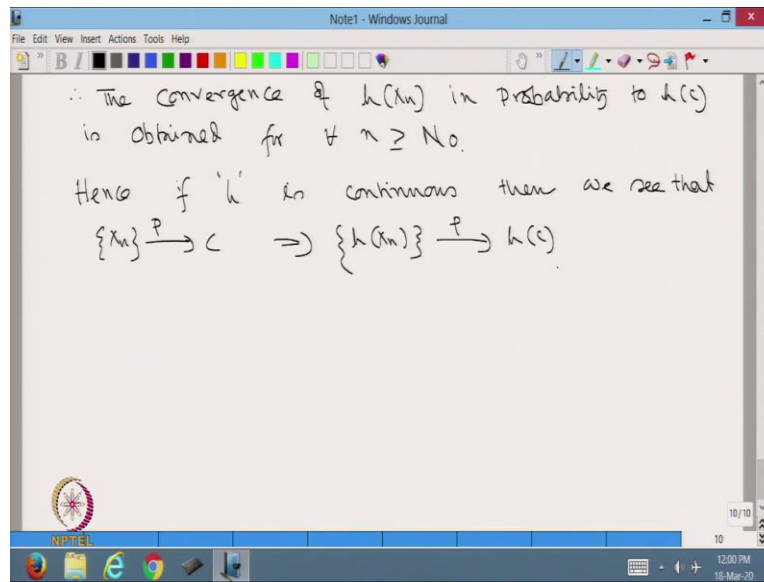 Note1 - Windows Journal
File Edit View Insert Actions Tools Help
B I
∴ The convergence of h(Xn) in Probability to h(c)
is obtained for ∀ n ≥ No.
Hence if 'h' is continuous then we see that
{Xn} P→ C ⇒ {h(Xn)} P→ h(c).
NPTEL
10/10
10
12:00 PM
18-Mar-20